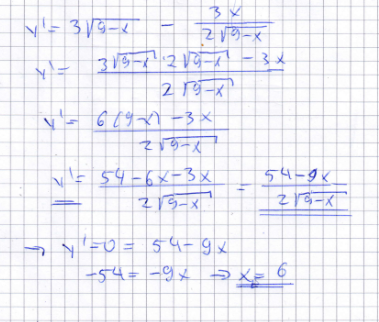 y' = 3√(9-x) - 3x / 2√(9-x)
y' = (3√(9-x) · 2√(9-x) - 3x) / 2√(9-x)
y' = (6(9-x) - 3x) / 2√(9-x)
y' = (54 - 6x - 3x) / 2√(9-x) = (54 - 9x) / 2√(9-x)
→ y' = 0 = 54 - 9x
-54 = -9x → x = 6